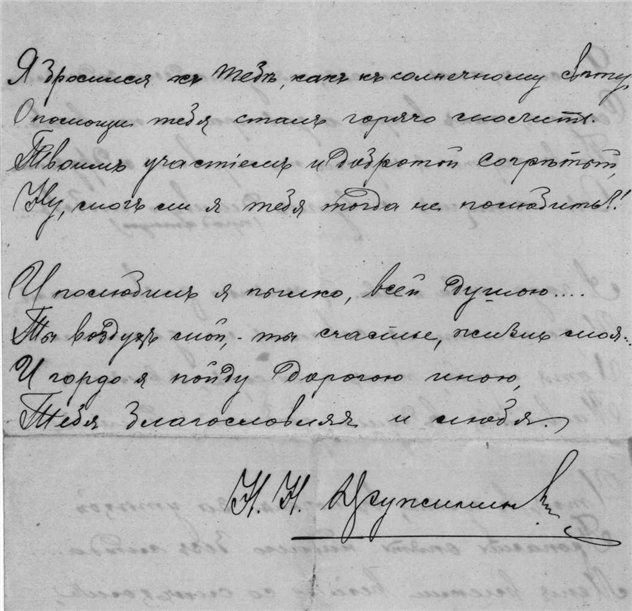 Я бросился къ тебѣ, какъ къ солнечному свѣту,
О помощи тебя сталъ горячо молить.
Твоимъ участіемъ и добротой согрѣтый,
Ну, могъ ли я тебя тогда не полюбить?!
И полюбилъ я пылко, всей душою....
Ты воздухъ мой, - ты счастье, жизнь моя...
И гордо я пойду дорогою иною,
Тебя благословляя и любя.
Н. Н.